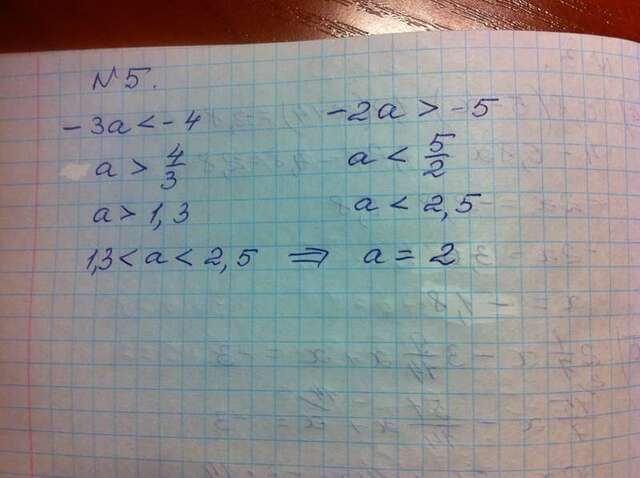 N5.
-3a < -4 -2a > -5
a > 4/3 a < 5/2
a > 1,3 a < 2,5
1,3 < a < 2,5 ⇒ a = 2